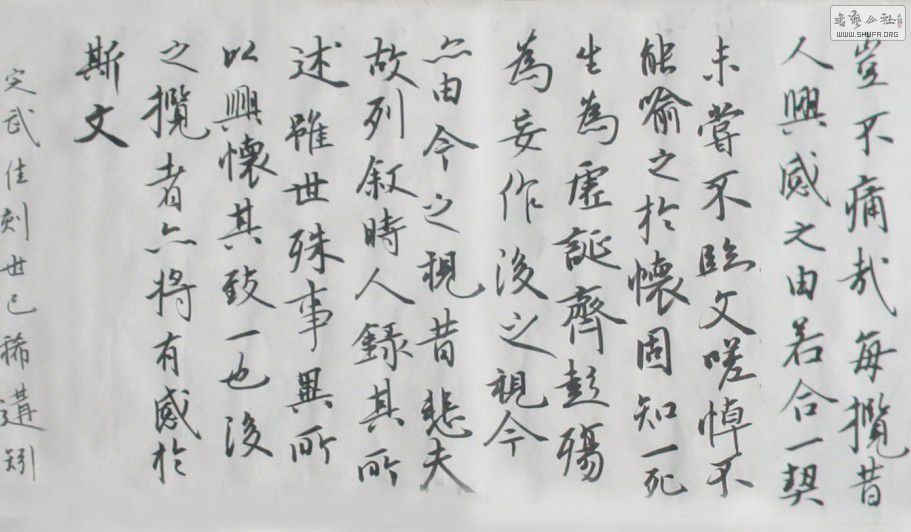 豈不痛哉每攬昔
人興感之由若合一契
未嘗不臨文嗟悼不
能喻之於懷固知一死
生為虛誕齊彭殤
為妄作後之視今
亦由今之視昔悲夫
故列叙時人錄其所
述雖世殊事異所
以興懷其致一也後
之攬者亦將有感於
斯文
定武佳刻世已稀遘矧
書藝公社
WWW.SHUFA.ORG